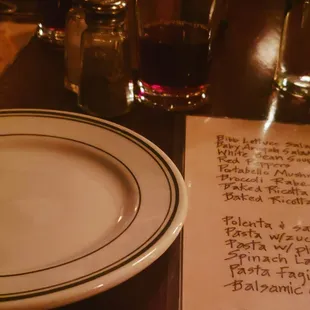 Bibb Lettuce Salad
Baby Arugula Salad
White Bean Soup
Red Peppers
Portabello
Broccoli Rabe
Baked Ricotta
Baked Ricotta
Polenta & sa
Pasta w/zuc
Pasta w/
Spinach La
Pasta Fagi
Balsamic